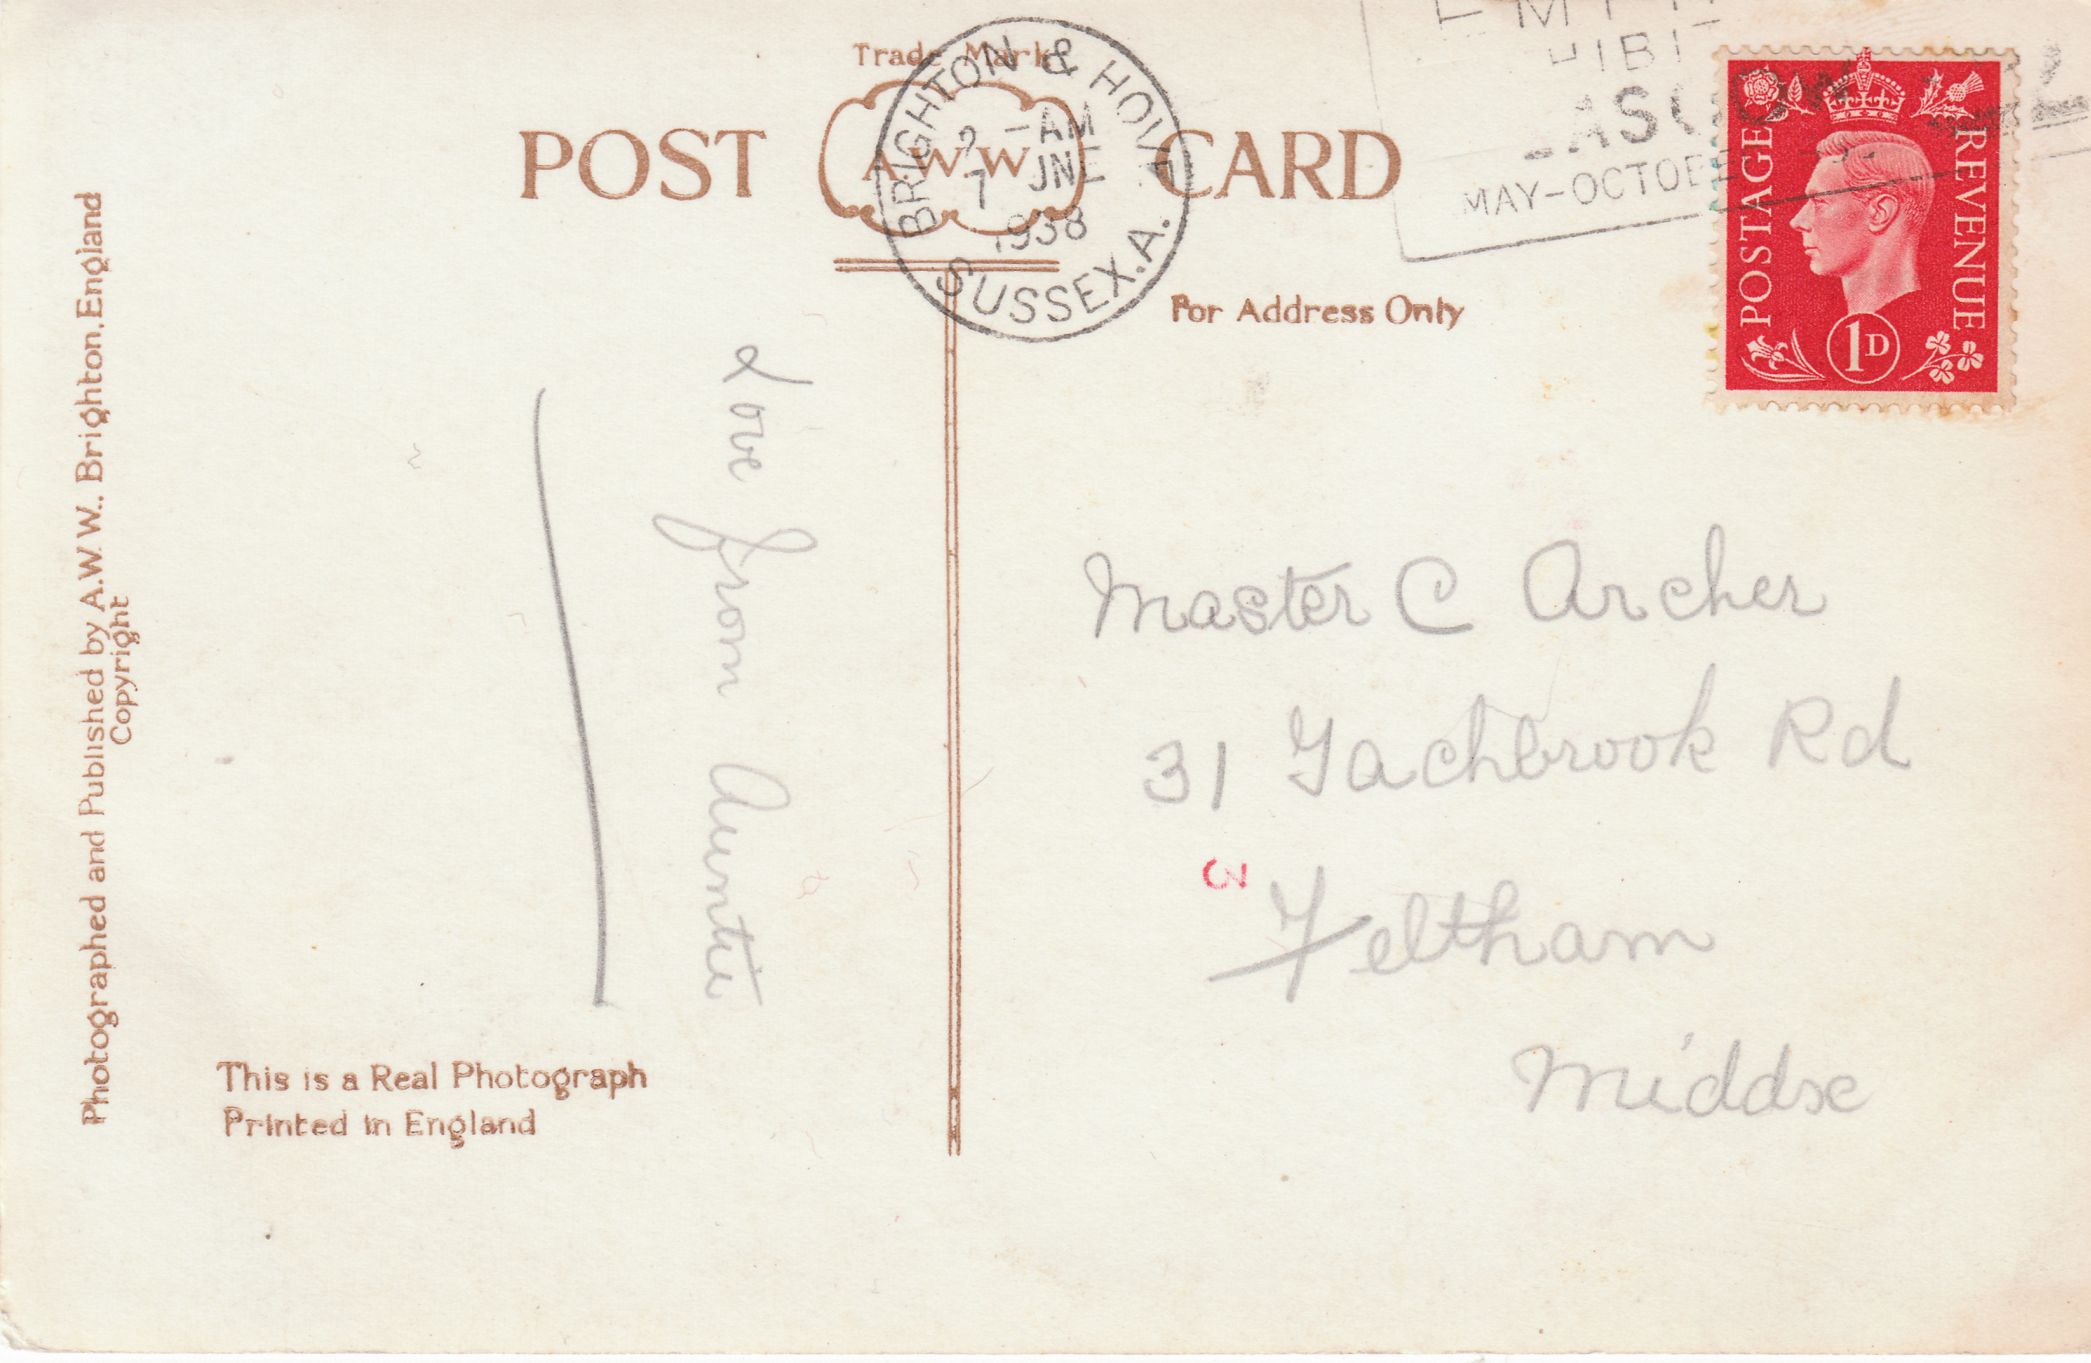 Trade Mark
POST A.W.W CARD
BRIGHTON & HOVE
SUSSEX.A.
-AM
7 JNE
1938
MAY-OCTOBER
POSTAGE
REVENUE
1D
For Address Only
Photographed and Published by A.W.W. Brighton, England
Copyright
Love from Auntie
Master C Archer
31 Tachbrook Rd
3
Feltham
Middsx
This is a Real Photograph
Printed in England